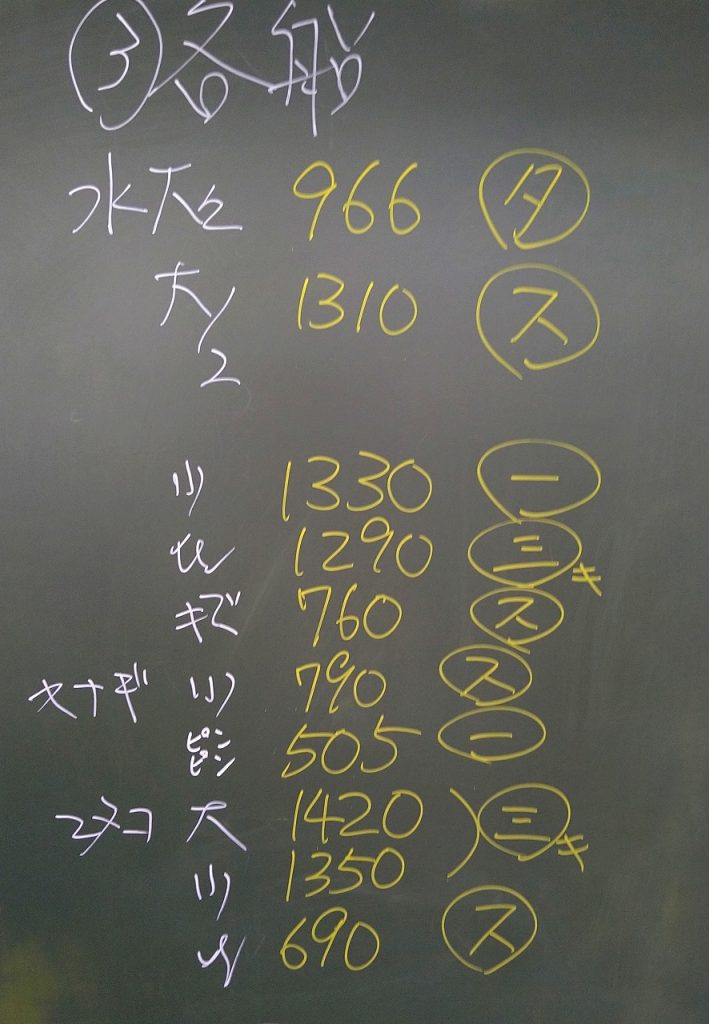 ③各船
水大 966 タ
大/2 1310 ス
小 1330 一
1290 三キ
キズ 760 ス
ヤナギ 小 790 ス
ピンピン 505 一
マメコ 大 1420 三キ
小 1350
690 ス